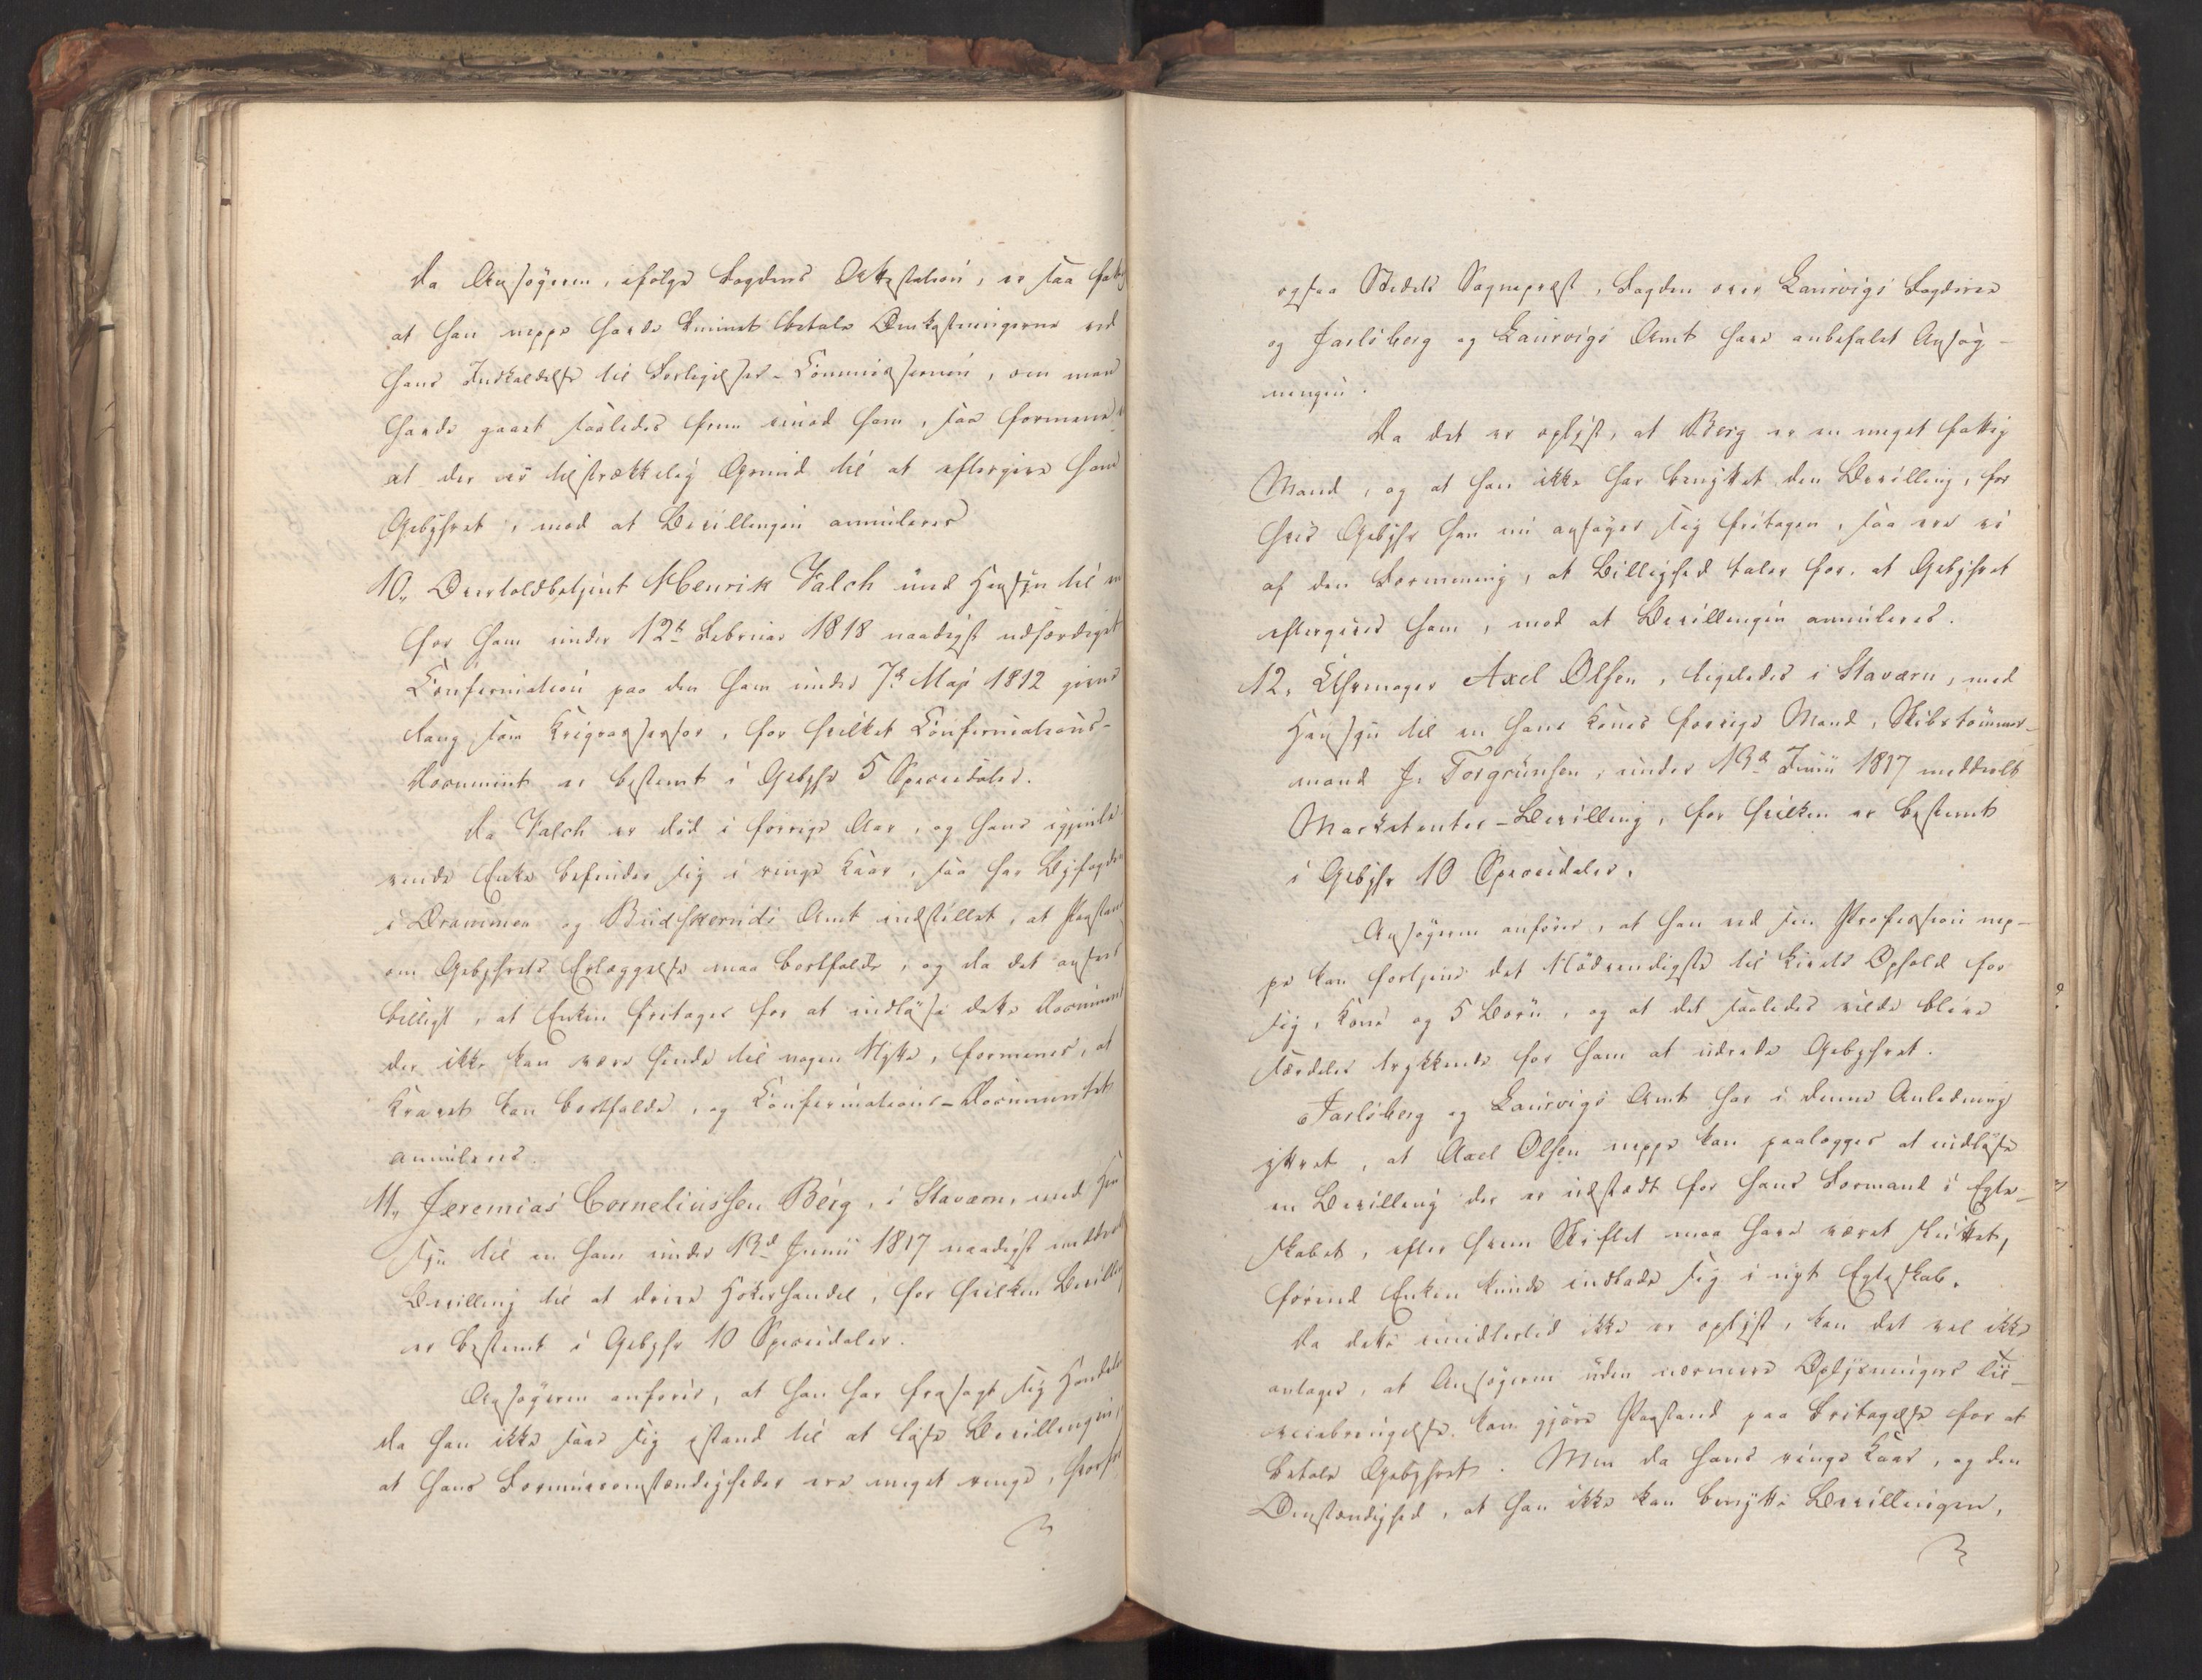 Da Ansøgeren, ifølge Fogdens Attestation, er saa fattig
at han neppe havde kunnet betale Omkostningerne ved
hans Indkaldelse til Forligelses-Commissionen, om man
havde gaaet saaledes frem imod ham, saa formenes
at der er tilstrækkelig Grund til at eftergive ham
Gebyhret, mod at Bevillingen annuleres
10, Overtoldbetjent Henrik Falch med Hensyn til en
for ham under 12te Februar 1818 naadigst udfærdiget
Confirmation paa den ham under 7de Maji 1812 givne
som Krigsassessor, for hvilket Confirmations-
Document er bestemt i Gebyhr 5 Speciedaler.
Da Falch er død i forrige Aar, og hans igjenle-
vende Enke befinder sig i ringe Kaar, saa har Byfogden
i Drammen og Budskeruds Amt indstillet, at Paastand
om Gebyhrets Erlæggelse maa bortfalde, og da det ansees
billigt, at Enken fritages for at indløse dette Document
der ikke kan være hende til nogen Nytte, formenes, at
Kravet kan bortfalde, og Confirmations-Documentet
annuleres.
11, Jeremias Corneliussen Berg, i Staværn, med Hen-
syn til en ham under 13de Junii 1817 naadigst meddeelt
Bevilling til at drive Høkerhandel, for hvilken Bevilling
er bestemt i Gebyhr 10 Speciedaler.
Ansøgeren anfører, at han har frasagt sig Handelen
da han ikke saae sig istand til at løse Bevillingen,
at hans Formuesomstændigheder ere meget ringe, hvorfor
ogsaa Stedets Sognepræst, Fogden over Laurvigs Fogderie
og Jarlsberg og Laurvigs Amt have anbefalet Ansøg-
ningen.
Da det er oplyst, at Berg er en meget fattig
Mand, og at han ikke har benyttet den Bevilling, for
hvis Gebyhr han nu ansøger sig fritagen, saa ere vi
af den Formening, at Billighed taler for, at Gebyhret
eftergives ham, mod at Bevillingen annuleres.
12, Uhrmager Axel Olsen, ligeledes i Staværn, med
Hensyn til en hans Kones forrige Mand, Skibstømmer-
mand J. Torgrimsen, under 13de Junii 1817 meddeelt
Marketenter-Bevilling, for hvilken er bestemt
i Gebyhr 10 Speciedaler.
Ansøgeren anfører, at han ved sin Profession nep-
pe kan fortjene det Nødvendigste til Livets Ophold for
sig, Kone og 5 Børn, og at det saaledes vilde blive
særdeles trykkende for ham at udrede Gebyhret.
Jarlsberg og Laurvigs Amt har i denne Anledning
yttret, at Axel Olsen neppe kan paalægges at indløse
en Bevilling der er udstædt for hans Formand i Egte-
skabet, efter hvem Skiftet maa have været sluttet,
førend Enken kunde indlade sig i nyt Egteskab.
Da dette imidlertid ikke er oplyst, kan det vel ikke
antages, at Ansøgeren uden nærmere Oplysningers Til-
veiebringelse kan gjøre Paastand paa Fritagelse for at
betale Gebyhret. Men da hans ringe Kaar, og den
Omstændighed, at han ikke kan benytte Bevillingen,